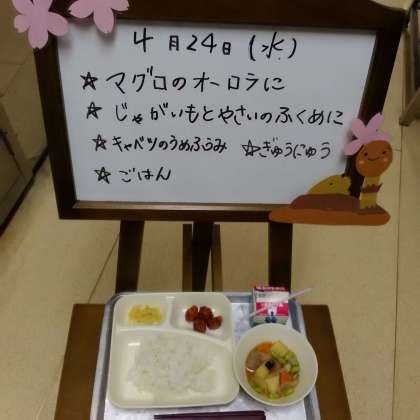 4月24日(水)
☆マグロのオーロラに
☆じゃがいもとやさいのふくめに
☆キャベツのうめふうみ ☆ぎゅうにゅう
☆ごはん